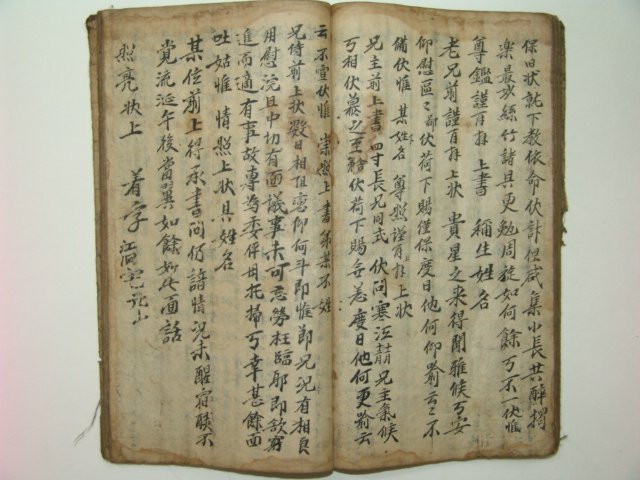 保日狀就下教依命伏計但咸集小長共醉携
樂最好絲竹諸具更勉周旋如何餘万不一伏惟
尊鑑謹百拜 上書 稱生姓名
老兄前謹百拜上狀 貴星之來得聞雅候万安
仰慰區〻鄙伏荷下賜僅保度日他何仰喩云〻不
備伏惟 某姓名 尊照謹百拜上狀
兄主前上書 四寸長兄同式 伏問寒江 兄主氣候
万相伏慕之至 伏荷下賜安善度日他何更喩云
云不宣伏惟 崇照上書弟某不姓
兄侍前上狀 數日相阻悤仰何斗即惟 即兄況有相良
用慰浣且中切有面議事未可忘勞枉臨耶即欲躬
進而適有事故專爲委伻毋托掃万幸甚餘面
吐姑惟 情照上狀具姓名
某信前上 得承書問仍諳情況未醒宿醆不
覺流涎午後當翼如餘如此面話
照亮狀上 着字